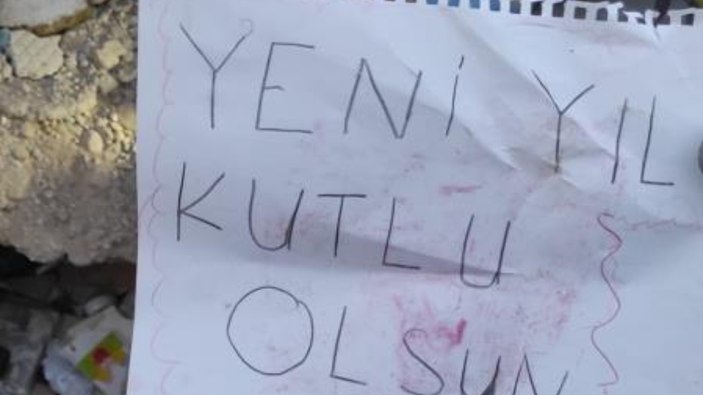 YENİ YIL
KUTLU
OLSUN